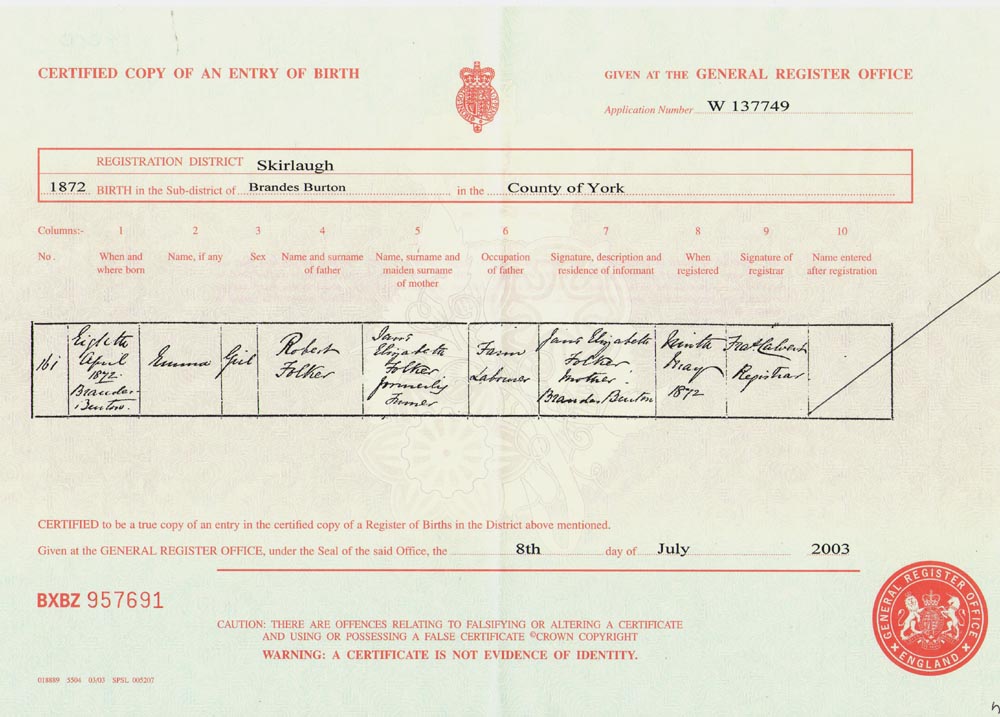 CERTIFIED COPY OF AN ENTRY OF BIRTH
GIVEN AT THE GENERAL REGISTER OFFICE
Application Number W 137749
REGISTRATION DISTRICT Skirlaugh
1872 BIRTH in the Sub-district of Brandes Burton in the County of York
Columns:- 1 2 3 4 5 6 7 8 9 10
No. When and where born
Name, if any
Sex
Name and surname of father
Name, surname and maiden surname of mother
Occupation of father
Signature, description and residence of informant
When registered
Signature of registrar
Name entered after registration
161
Eighth
April
1872
Brandes
Burton.
Emma
Girl
Robert
Folker
Jane
Elizabeth
Folker
formerly
Farm
Labourer
Jane Elizabeth
Folker
Mother
Brandes Burton
Ninth
May
1872
Registrar
CERTIFIED to be a true copy of an entry in the certified copy of a Register of Births in the District above mentioned.
Given at the GENERAL REGISTER OFFICE, under the Seal of the said Office, the 8th day of July 2003
BXBZ 957691
CAUTION: THERE ARE OFFENCES RELATING TO FALSIFYING OR ALTERING A CERTIFICATE
AND USING OR POSSESSING A FALSE CERTIFICATE ©CROWN COPYRIGHT
WARNING: A CERTIFICATE IS NOT EVIDENCE OF IDENTITY.
GENERAL REGISTER OFFICE
ENGLAND
018889 5504 03/03 SPSL 005207